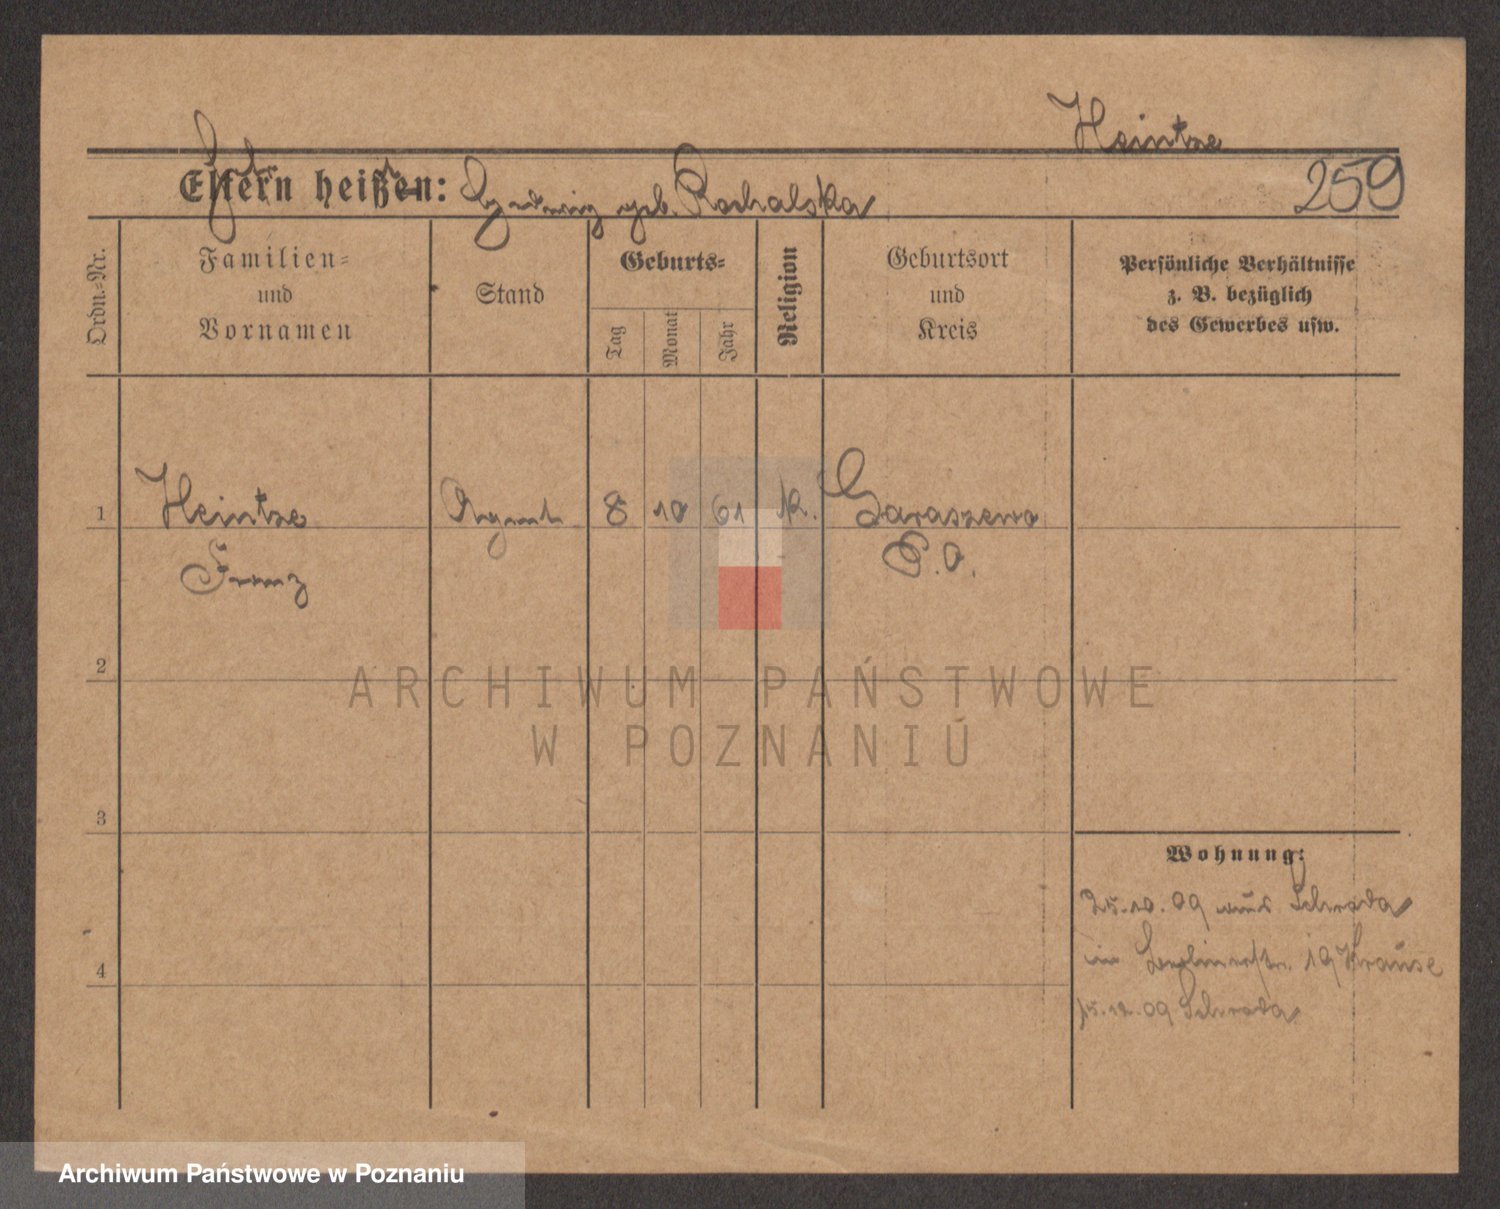 Heintze
259
Eltern heißen: Hedwig geb. Rochalska
Ordn.-Nr.
Familien-
und
Vornamen
Stand
Geburts-
Tag
Monat
Jahr
Religion
Geburtsort
und
Kreis
Persönliche Verhältnisse
z. B. bezüglich
des Gewerbes usw.
1 Heintze Agent 8 10 61 K. Garaszewo
Franz P. O.
2
3
4
Wohnung:
25.10.09 aus Schroda
in Berlinerstr. 19 Krause
15.12.09 Schroda
ARCHIWUM PAŃSTWOWE
W POZNANIU
Archiwum Państwowe w Poznaniu